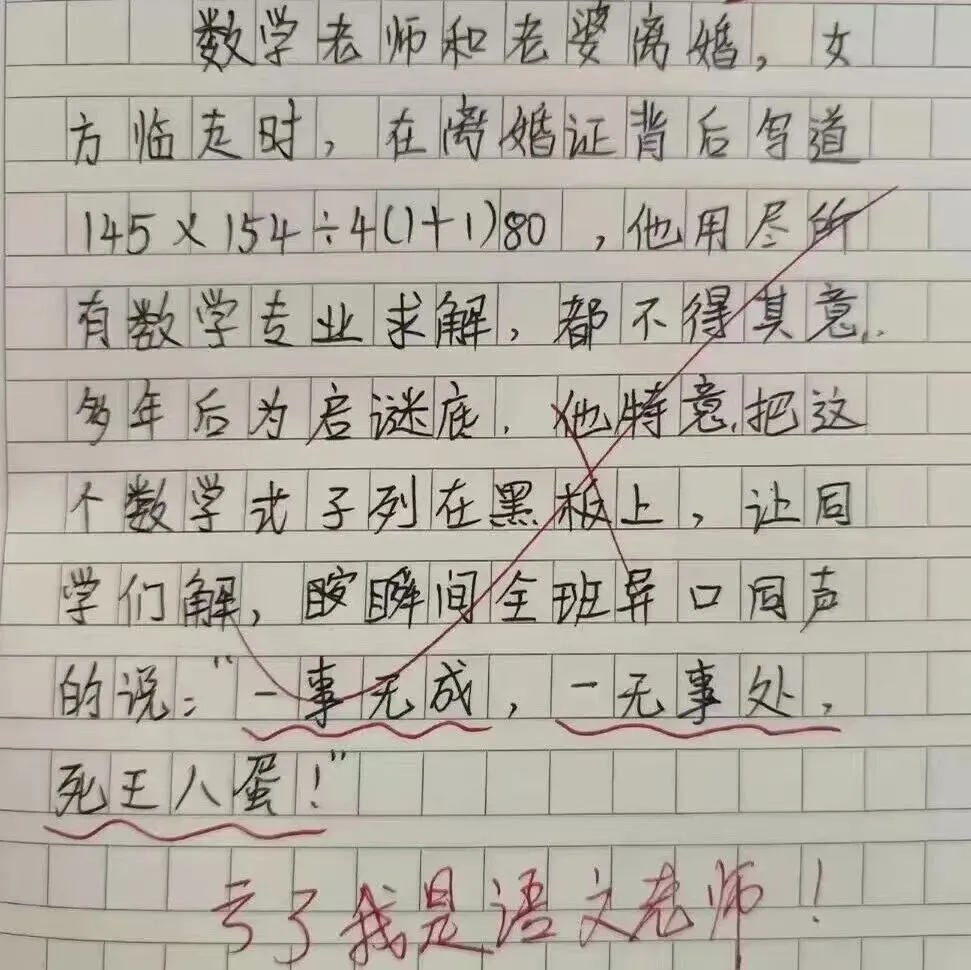 数学老师和老婆离婚，女
方临走时，在离婚证背后写道
145×154÷4(1+1)80，他用尽所
有数学专业求解，都不得其意.
多年后为启谜底.他特意,把这
个数学式子列在黑板上，让同
学们解，瞬间全班异口同声
的说："一事无成，一无事处，
死王八蛋！"
亏了我是语文老师！